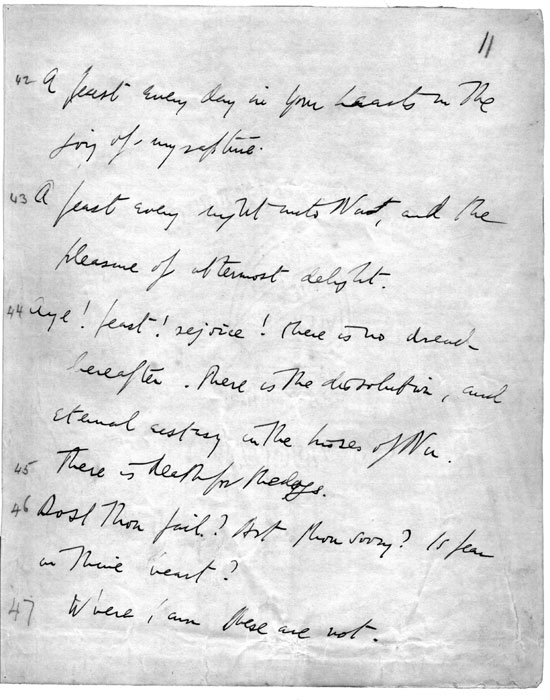 11
42 A feast every day in your hearts in the
joy of my rapture.
43 A feast every night unto Nu, and the
pleasure of uttermost delight.
44 Aye! feast! rejoice! there is no dread
hereafter. There is the dissolution, and
eternal ecstasy in the kisses of Nu.
45 There is death for the dogs.
46 Dost thou fail? Art thou sorry? Is fear
in thine heart?
47 Where I am these are not.